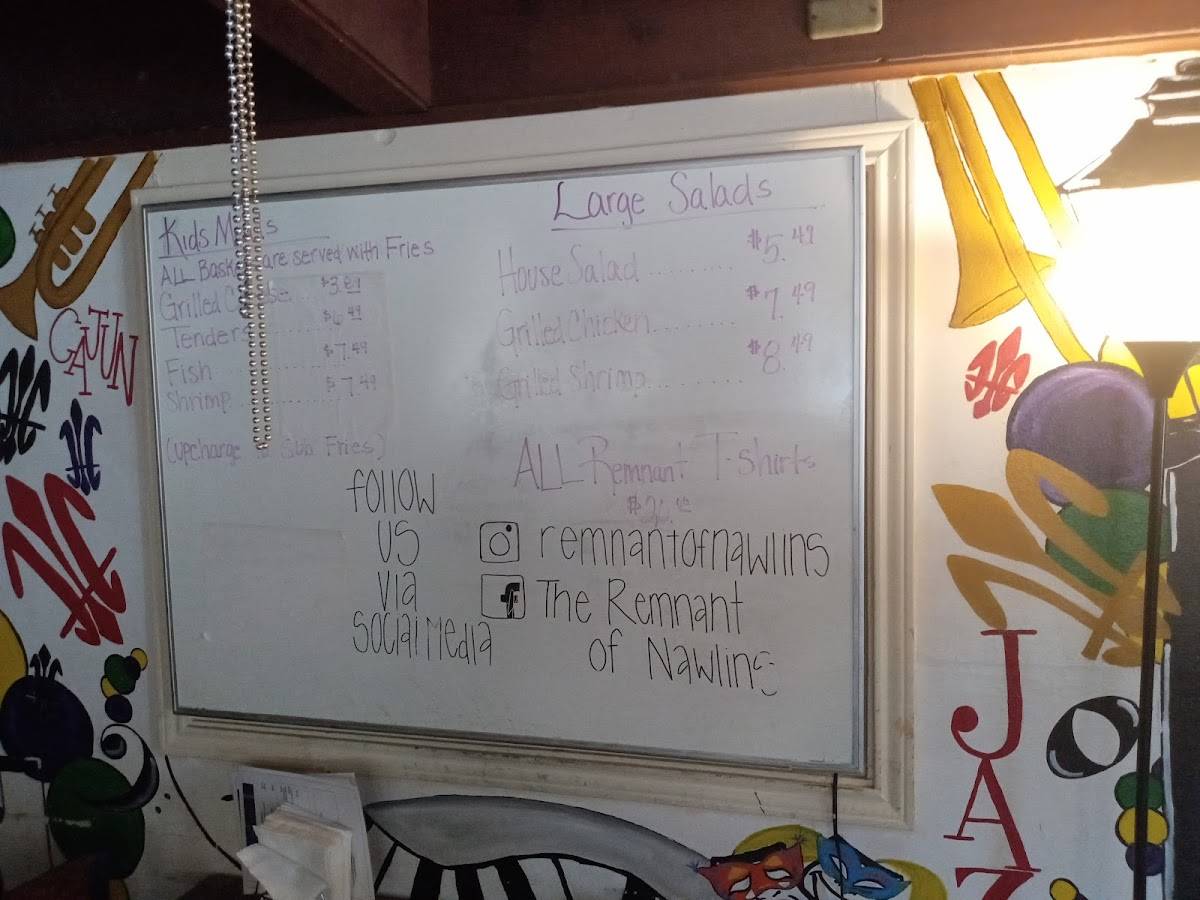 Kids
ALL are served with Fries
Grilled
Tenders
Fish ........ $7.49
Shrimp ........ $7.49
(upcharge Sub Fries)
Large Salads
House Salad ........ $5.49
Grilled Chicken ........ $7.49
Grilled Shrimp ........ $8.49
ALL Remnant T-shirts
follow
us
via
social media
remnantofnawlins
f The Remnant
of Nawlins
CAJUN
JAZ